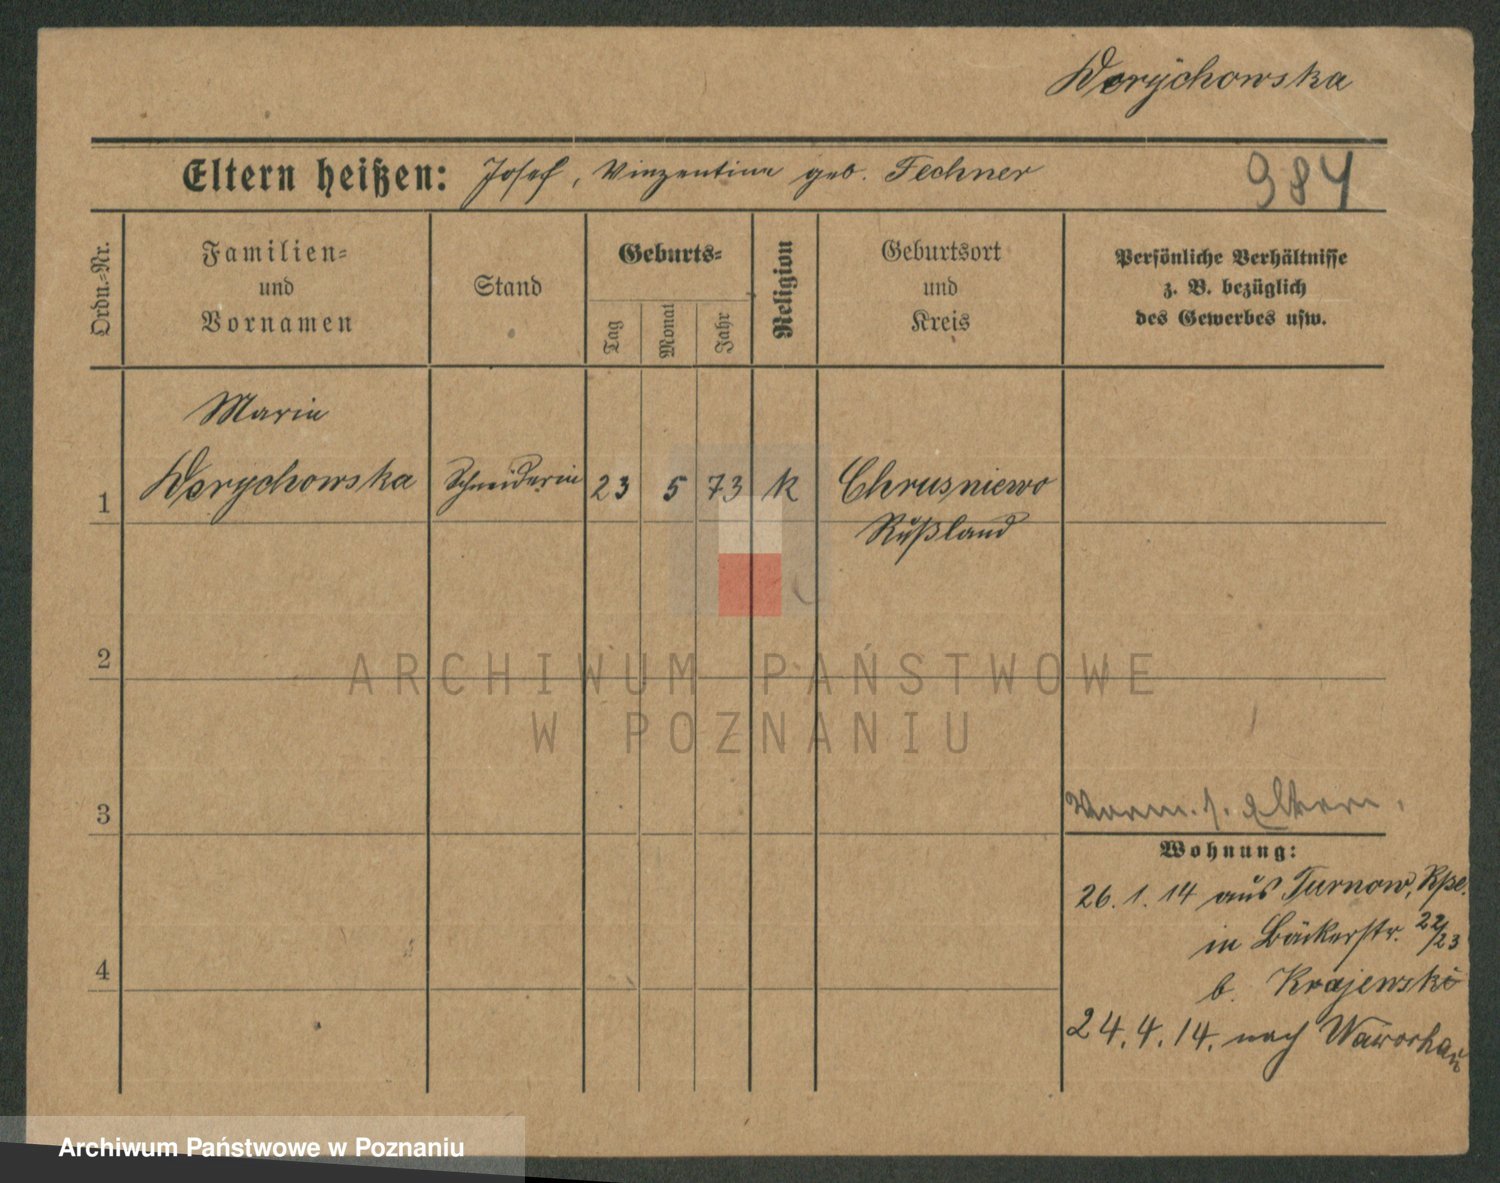 Derÿchowska
Eltern heißen: Josef, Vinzentine geb. Fechner
984
Ordn.=Nr.
Familien=
und
Vornamen
Stand
Geburts=
Tag
Monat
Jahr
Religion
Geburtsort
und
Kreis
Persönliche Verhältnisse
z. B. bezüglich
des Gewerbes usw.
Marie
1 Derychowska Schneiderin 23 5 73 k Chrusniewo
Rußland
2
ARCHIWUM PAŃSTWOWE
W POZNANIU
3
Eltern.
Wohnung:
26. 1. 14 aus Turnow,
in Bäckerstr. 22/23
b. Krajewski
4
24. 4. 14. nach
Archiwum Państwowe w Poznaniu